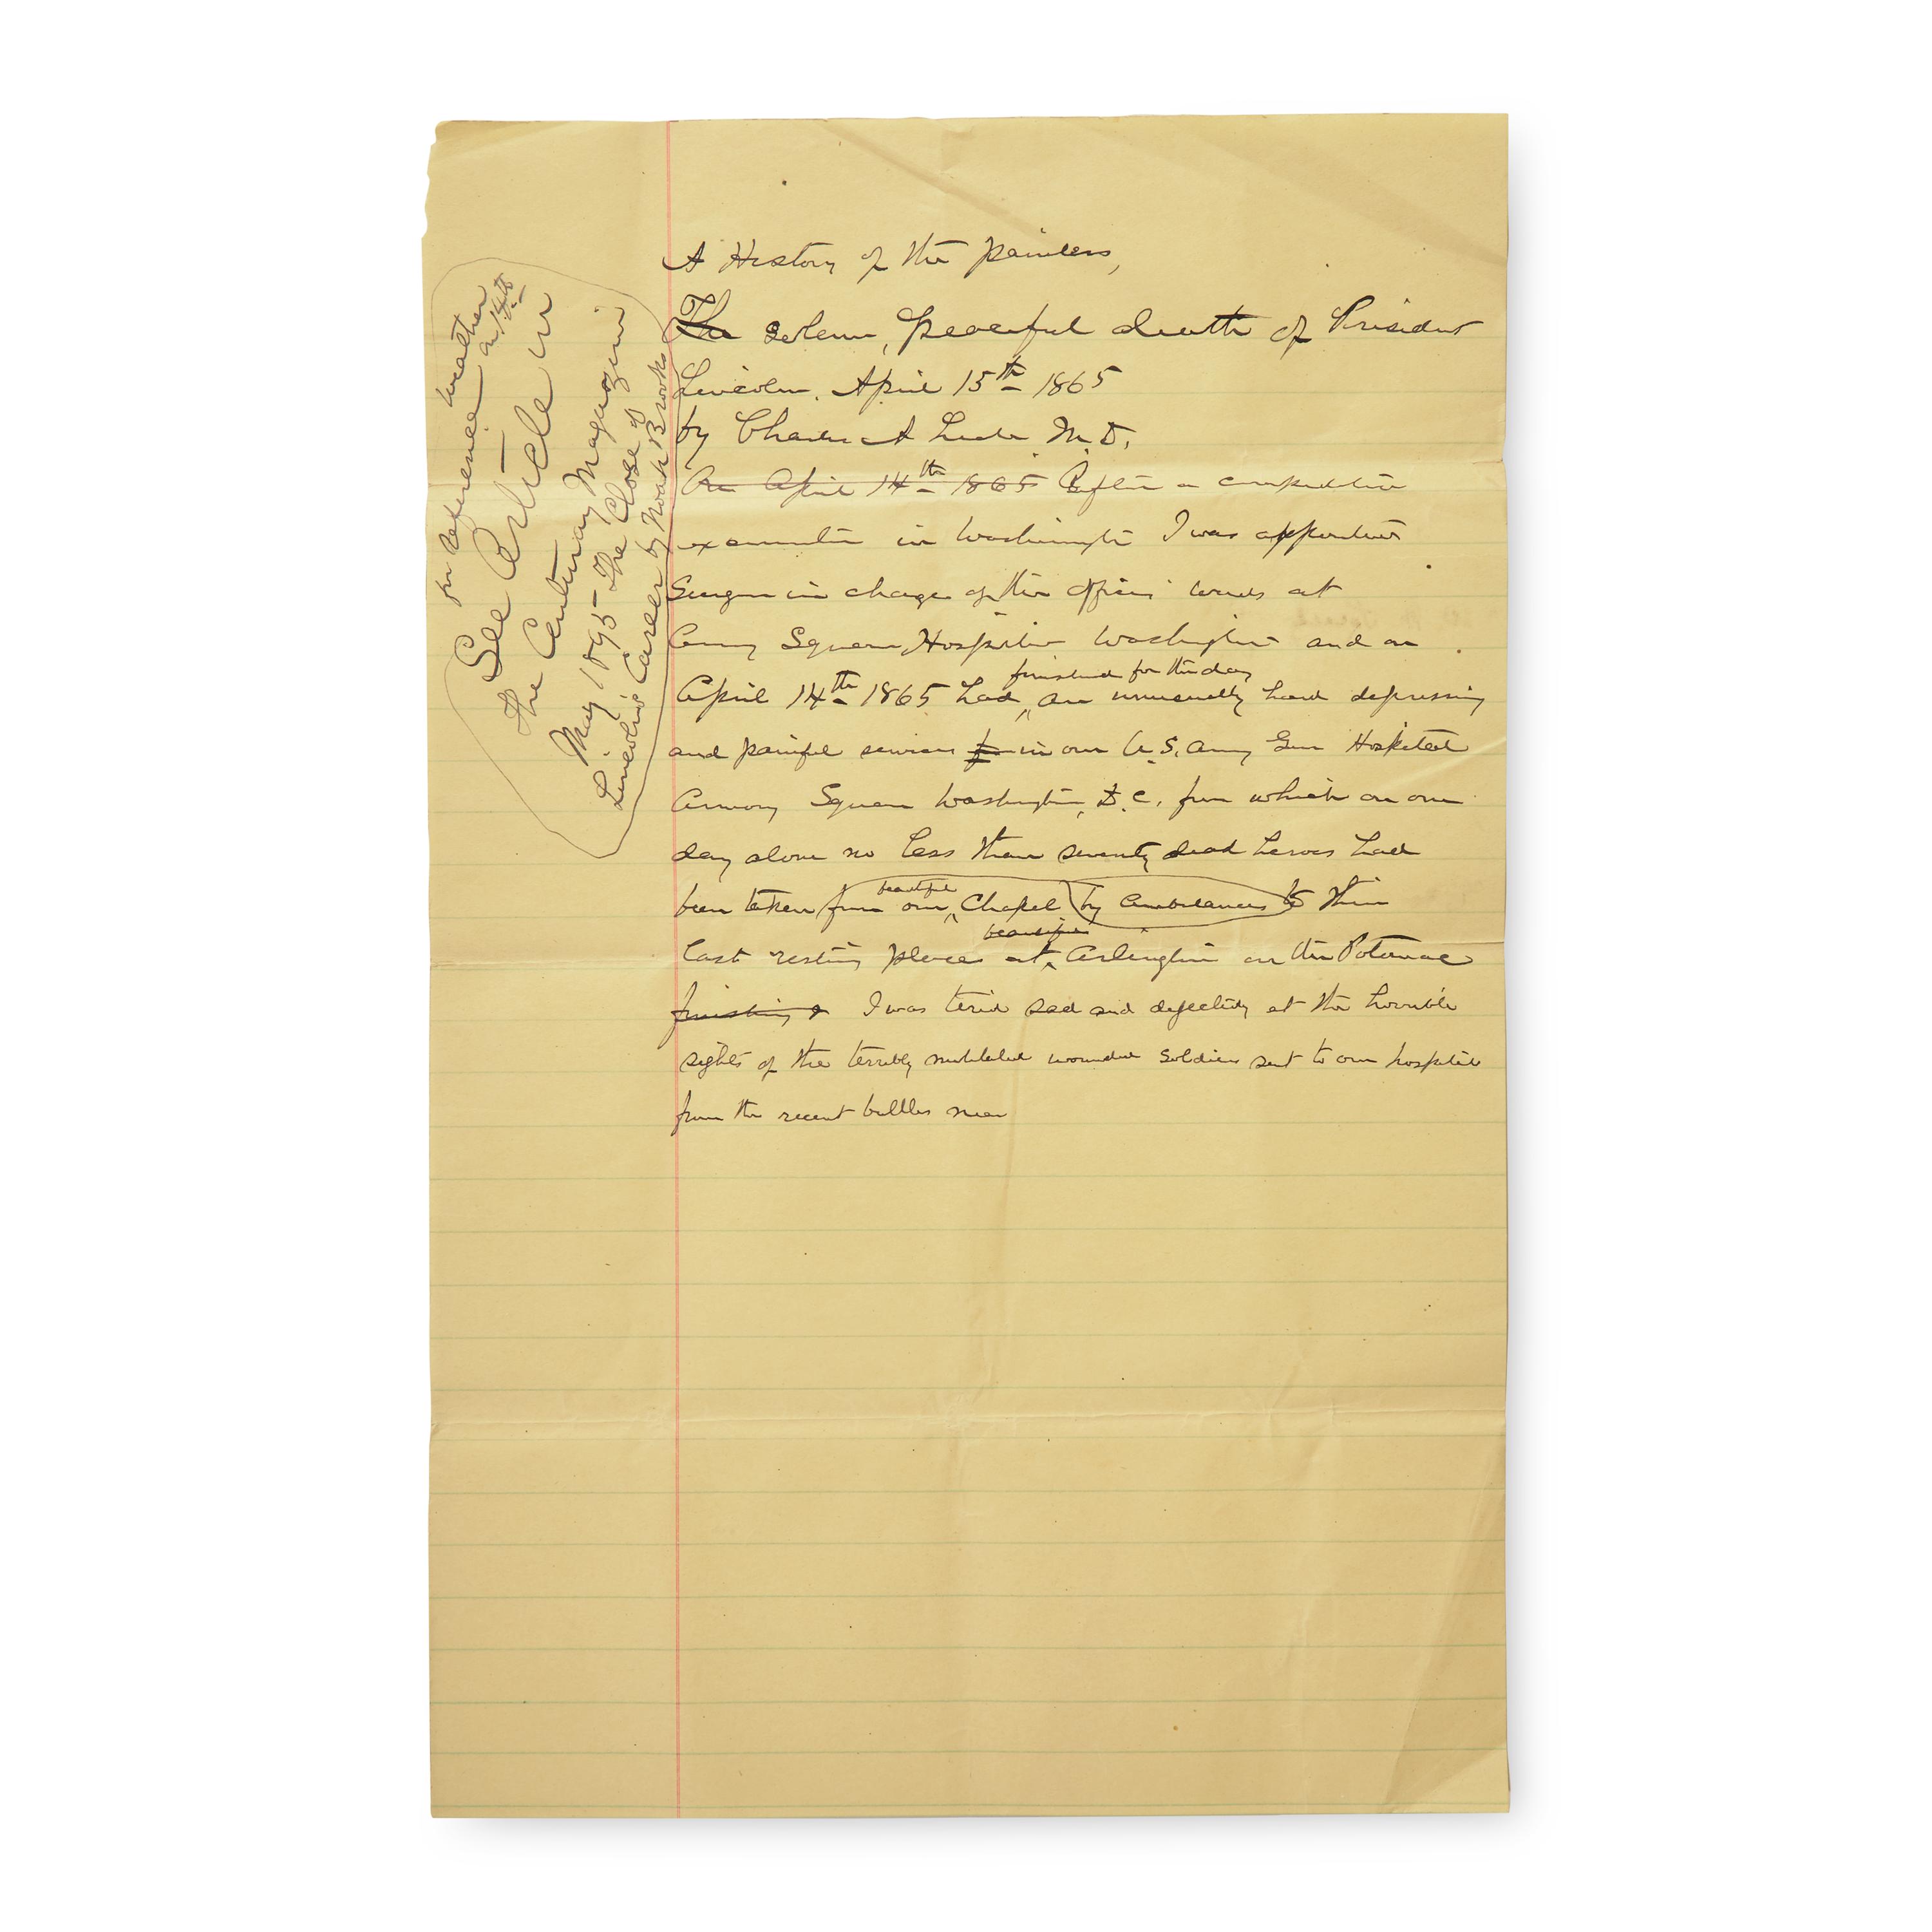 A History of the painless,
The solemn, peaceful death of President
Lincoln. April 15th 1865
by Charles A Leale M.D.
On April 14th 1865 After a competitive
examination in Washington I was appointed
Surgeon in charge of the Officers wards at
Army Square Hospital Washington and on
finished for the day
April 14th 1865 had an unusually hard depressing
and painful services in our U.S. Army Gen Hospital
Armory Square Washington, D.C. from which on one
day alone no less than seventy dead heroes had
beautiful
been taken from our Chapel by ambulances to their
beautiful
last resting places at Arlington on the Potomac
finishing & I was tired sad and dejected at the horrible
sights of the terribly mutilated wounded soldiers sent to our hospital
from the recent battles near
for reference weather on 14th
See Article in
the Century Magazine
May 1895 The Close of
Lincoln's Career by Noah Brooks